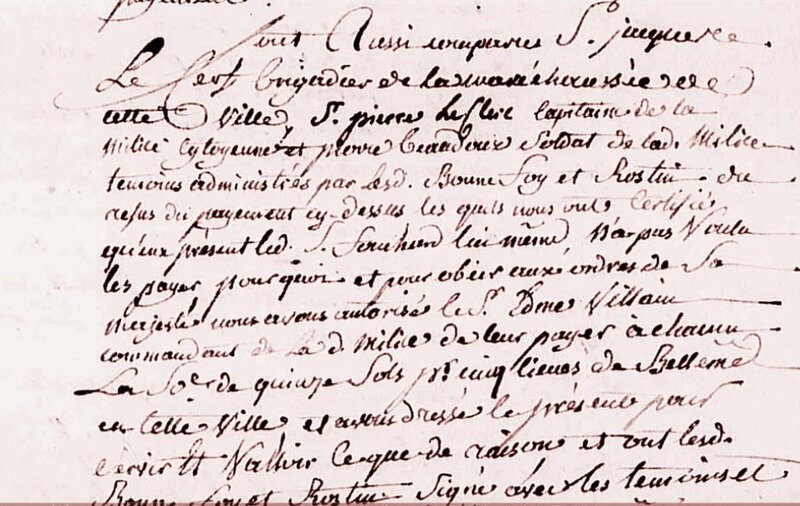 payement.
Sont Aussi comparus Sr. jacques
Le Cerf brigadier de la maréchaussée de
cette Ville, Sr. pierre Le Clerc Capitaine de la
Milice Cytoyenne et pierre beaudoux Soldat de lad. Milice
temoins administrés par lesd. Bonne Foy et Rostin du
refus du payement cy-dessus les quels nous ont Certifié
qu'eux présent led. S. Fouchard lui même, N'a pas Voulu
les payer pourquoi et pour obeir aux ordres de Sa
majesté nous avons autorisé le Sr. Edme Villain
commandant de La d. Milice de leur payer à chacun
La Soe. de quinze Sols pr. cinq lieues de Bellême
en Cette Ville et avons dressé le présent pour
servir Et Valloir Ce que de raison et ont lesd.
Bonne Foy et Rostin Signé avec les temoins et